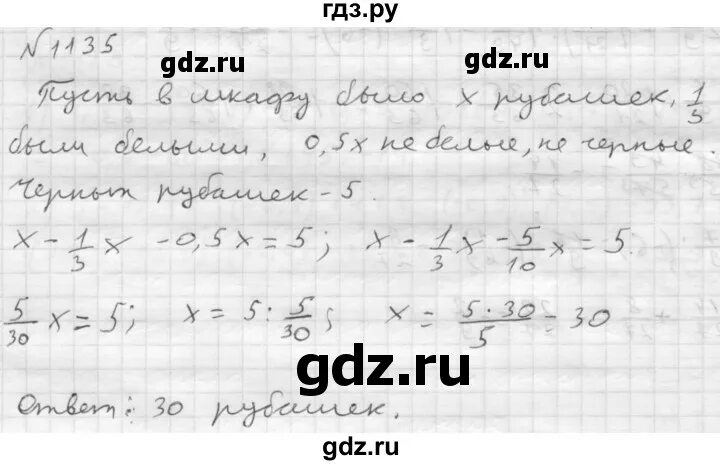 гдз.ру
№1135
gdz.ru gdz.ru
Пусть в шкафу было x рубашек, 1/3
были белыми, 0,5x не белые, не черные.
Черных рубашек - 5.
x - 1/3 x - 0,5x = 5; x - 1/3 x - 5/10 x = 5.
5/30 x = 5; x = 5 : 5/30; x = 5·30/5 = 30
gdz.ru
Ответ: 30 рубашек.
gdz.ru